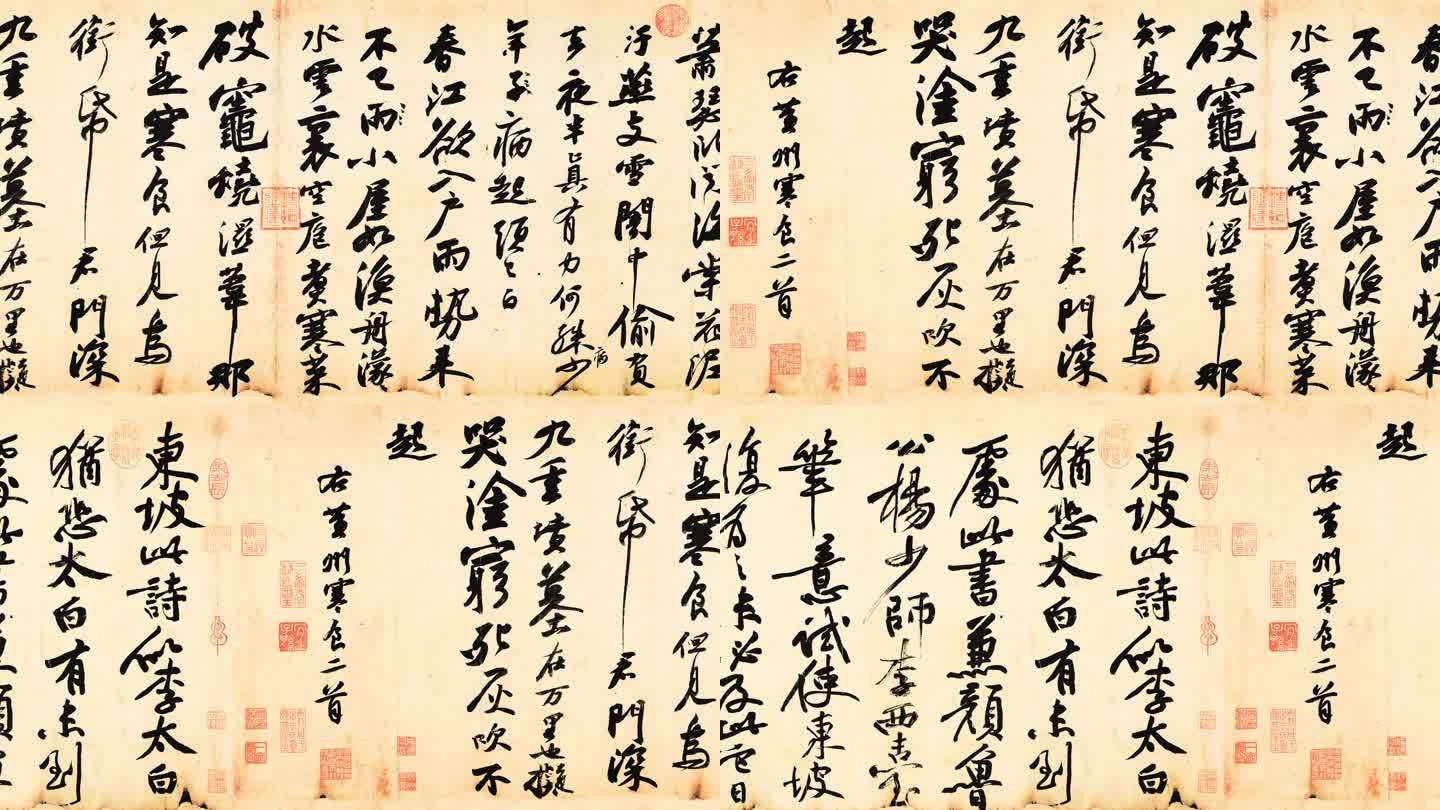 蕭瑟臥聞海棠花泥
汙燕支雪闇中偷負
去夜半真有力何殊少
病
年子病起須已白
春江欲入戶雨勢來
不已雨小屋如漁舟濛
水雲裏空庖煑寒菜
破竈燒濕葦那
知是寒食但見烏
銜帋君門深
九重墳墓在万里也擬
春江欲入戶雨勢來
不已雨小屋如漁舟濛
水雲裏空庖煑寒菜
破竈燒濕葦那
知是寒食但見烏
銜帋君門深
九重墳墓在万里也擬
哭塗窮死灰吹不
起
右黃州寒食二首
知是寒食但見烏
銜帋君門深
九重墳墓在万里也擬
哭塗窮死灰吹不
起
右黃州寒食二首
東坡此詩似李太白
猶恐太白有未到
處此書兼顏魯
起
右黃州寒食二首
東坡此詩似李太白
猶恐太白有未到
處此書兼顏魯
公楊少師李西臺
筆意試使東坡
復為之未必及此它日